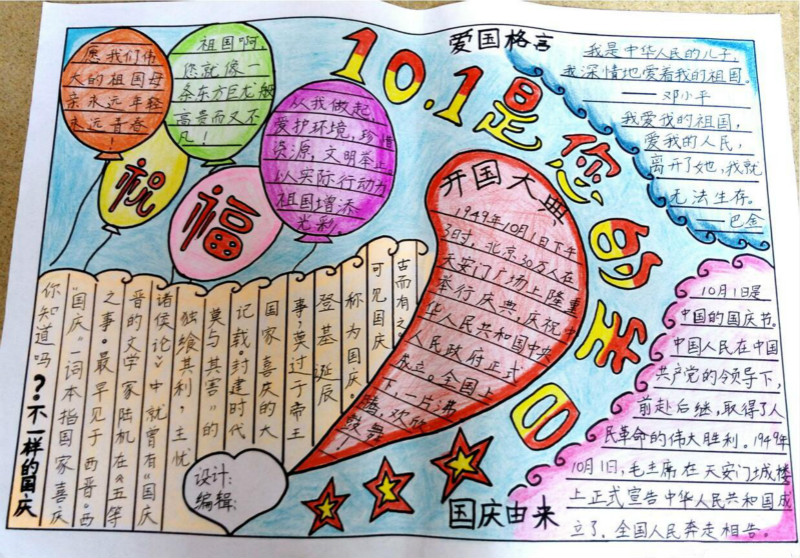 10.1是您的生日
愿我们伟
大的祖国母
亲永远年轻
永远青春
!
祖国啊,
您就像一
条东方巨龙般
高贵而又不
凡!
从我做起,
爱护环境,珍惜
资源,文明举止
以实际行动为
祖国增添
光彩。
祝
福
爱国格言
我是中华人民的儿子,
我深情地爱着我的祖国。
——邓小平
我爱我的祖国,
爱我的人民,
离开了她,我就
无法生存。
——巴金
开国大典
1949年10月1日下午
3时,北京30万人在
天安门广场上隆重
举行庆典,庆祝中
华人民共和国中央
人民政府正式
成立。全国上
下,一片沸
腾,欢欣
鼓舞!
你知道吗?不一样的国庆
“国庆”一词本指国家喜庆
之事。最早见于西晋。西
晋的文学家陆机在《五等
诸侯论》中就曾有“国庆
独飨其利,主忧
莫与其害”的
记载。封建时代
国家喜庆的大
事,莫过于帝王
登基诞辰
称为国庆。
可见国庆
古而有之
设计:
编辑:
国庆由来
10月1日是
中国的国庆节。
中国人民在中国
共产党的领导下,
前赴后继,取得了人
民革命的伟大胜利。1949年
10月1日,毛主席在天安门城楼
上正式宣告中华人民共和国成
立了,全国人民奔走相告。